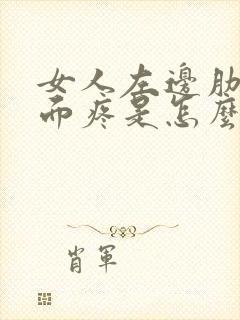 女人左邊肋
而疼是怎麼
肖軍